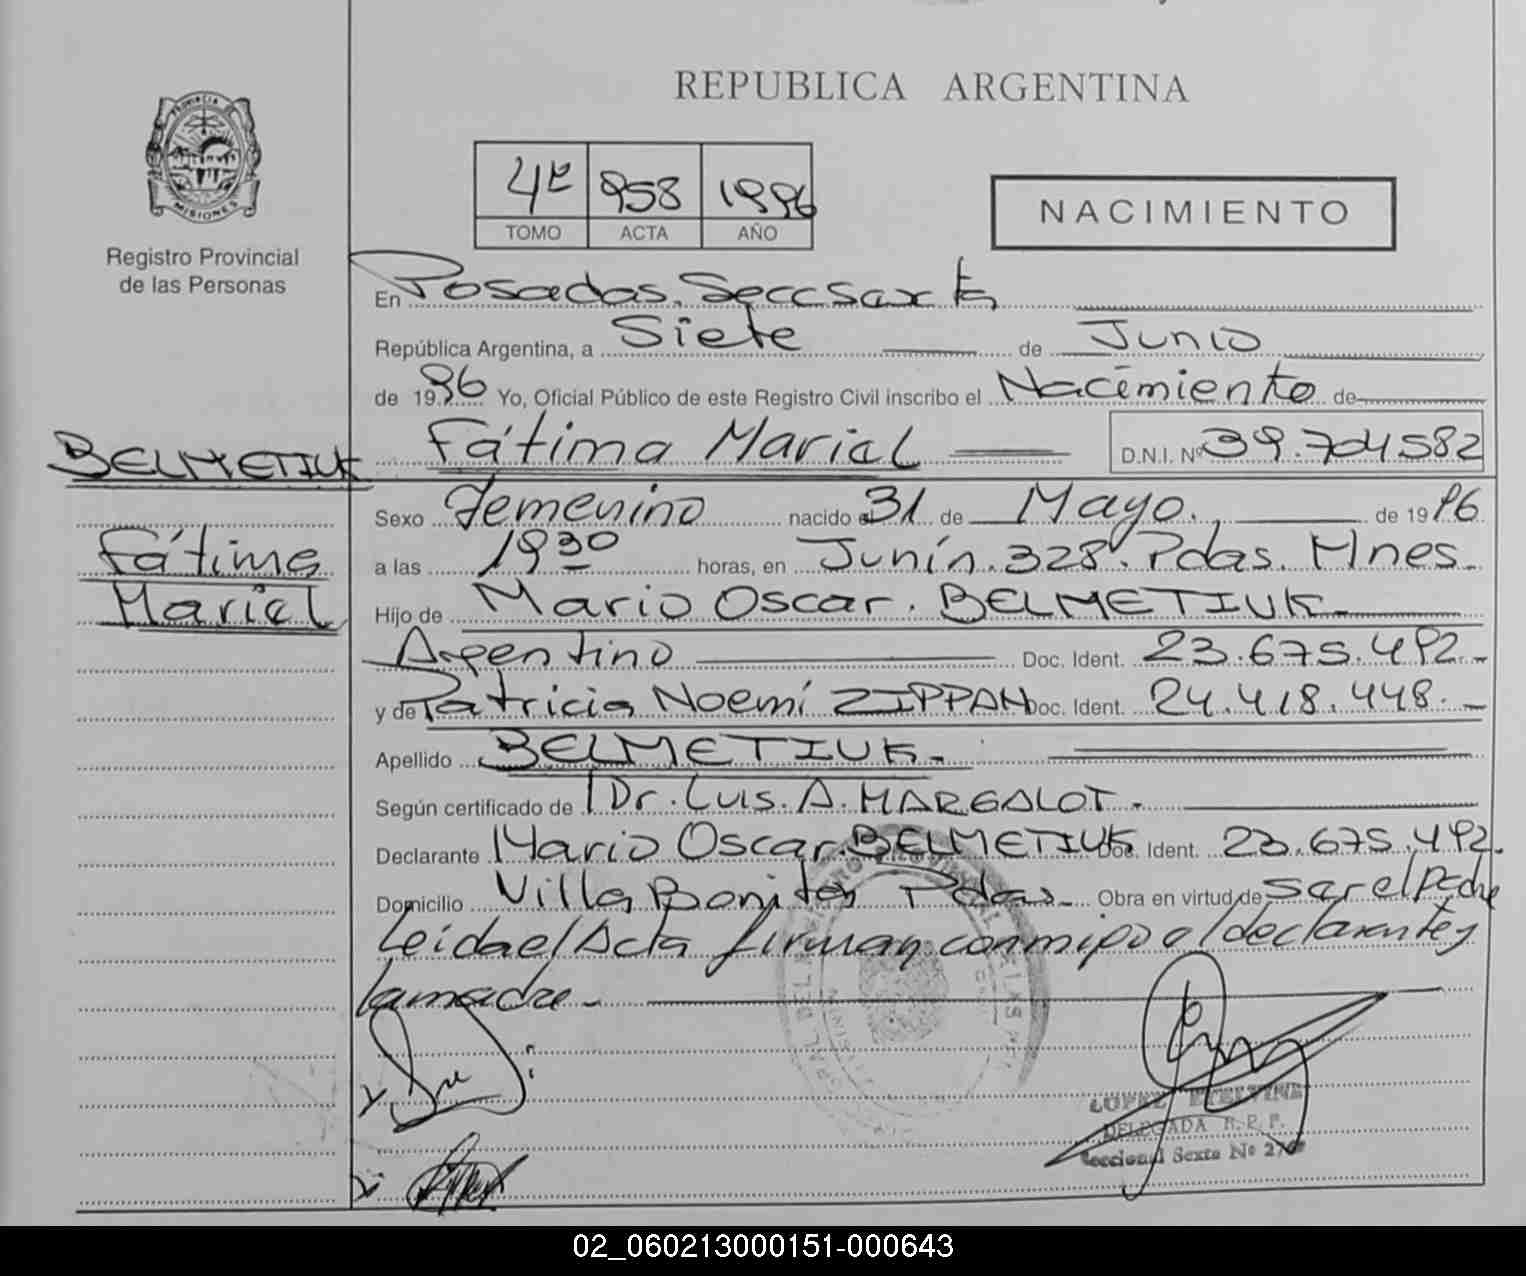 REPUBLICA ARGENTINA
4º 958 1996
TOMO ACTA AÑO
NACIMIENTO
MISIONES
Registro Provincial
de las Personas
En Posadas. Secc Sexta
República Argentina, a Siete de Junio
de 1996 Yo, Oficial Público de este Registro Civil inscribo el Nacimiento de
BELMETIUK
Fátima
Mariel
Fátima Mariel D.N.I. Nº 39.704.582
Sexo Femenino nacido el 31 de Mayo. de 1996
a las 19 30 horas, en Junín. 328. Pdas. Mnes.
Hijo de Mario Oscar. BELMETIUK-
Argentino Doc. Ident. 23.675.492-
y de Patricia Noemí ZIPPAN Doc. Ident. 24.418.448.-
Apellido BELMETIUK-
Según certificado de Dr. Luis. A. MARGALOT.
Declarante Mario Oscar. BELMETIUK Doc. Ident. 23.675.492.
Domicilio Villa Bonita Pdas- Obra en virtud de ser el Padre
Leida el Acta firman conmigo el declarante y
la madre-
LOPEZ ETELVINA
DELEGADA R. P. P.
Seccional Sexta Nº
02_060213000151-000643